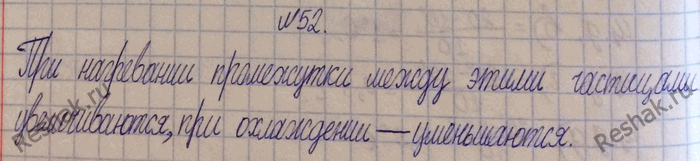 №52.
При нагревании промежутки между этими частицами
увеличиваются, при охлаждении — уменьшаются.
Reshak.ru
Reshak.ru